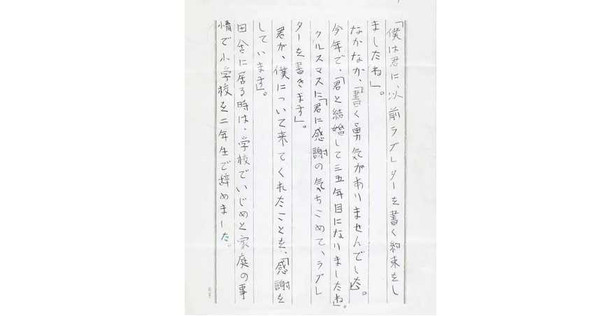 「僕は君に、以前ラブレターを書く約束をし
ましたね」。
なかなか、「書く勇気がありませんでした。
今年で、「君と結婚して三五年目になりましたね」。
クルスマスに「君に感謝の気もちこめて、ラブレ
ターを書きます」。
君が、僕について来てくれたことを、「感謝を
しています」。
田舎に居る時は、学校でいじめと家庭の事
情で小学校を二年生で辞めました。